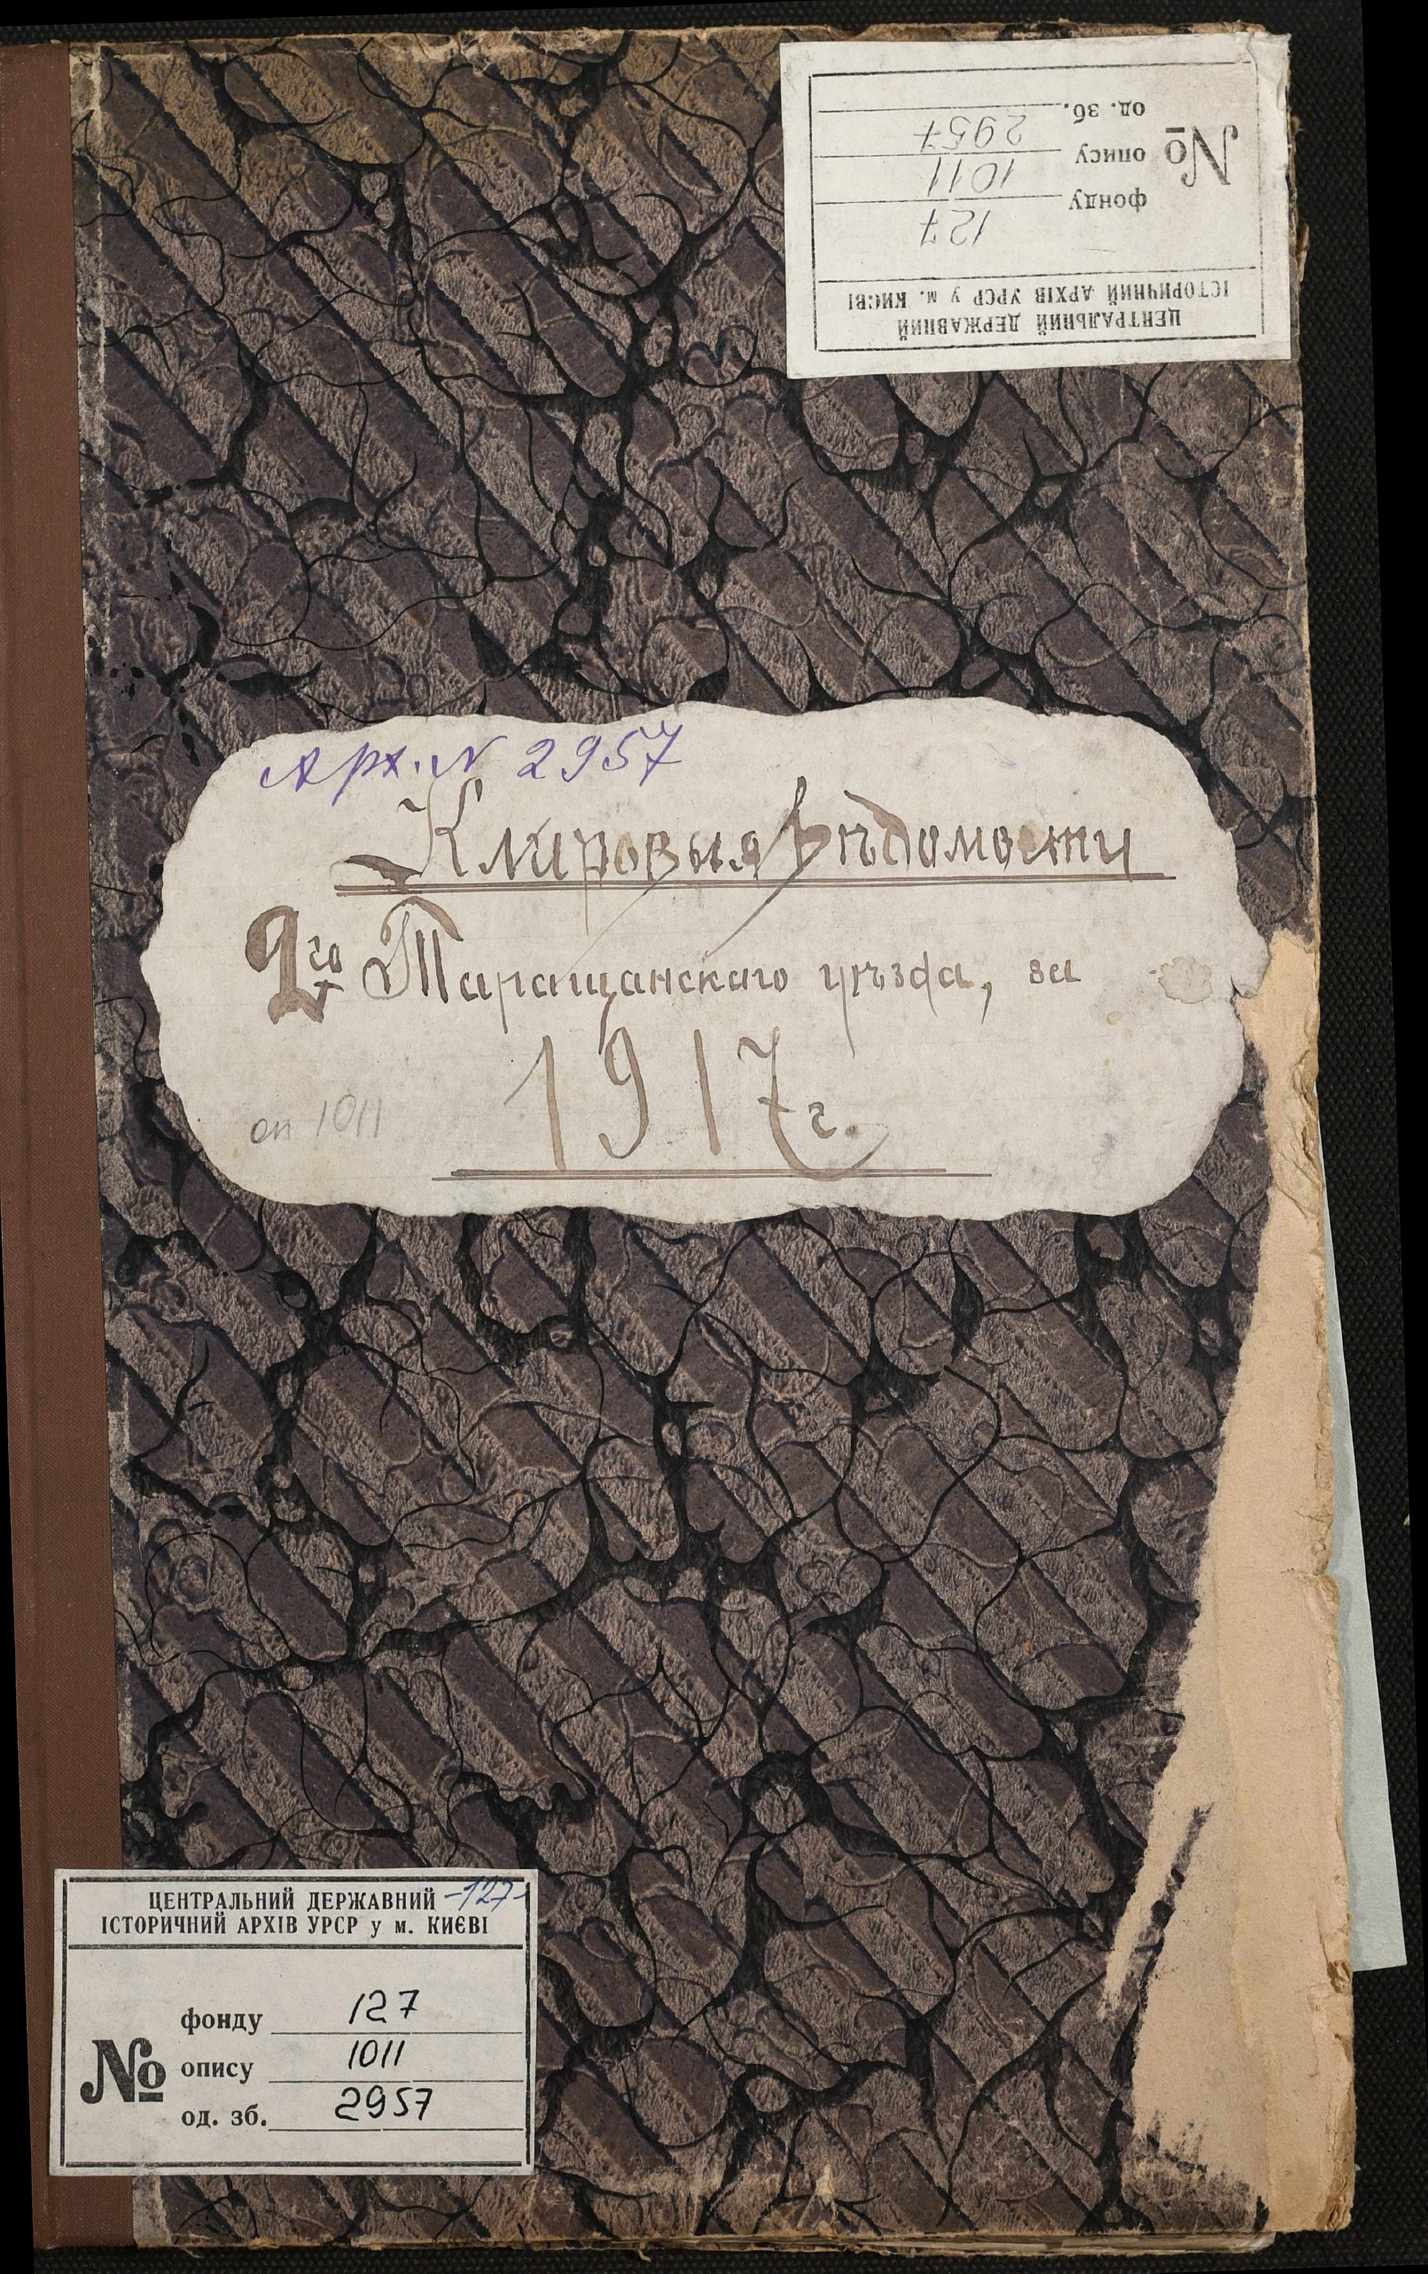 №
фонду 127
опису 1011
од. зб. 2957
ЦЕНТРАЛЬНИЙ ДЕРЖАВНИЙ
ІСТОРИЧНИЙ АРХІВ УРСР у м. КИЄВІ
Арх. N 2957
Клировыя Вѣдомости
2го Таращанскаго уѣзда, за
1917 г.
оп 1011
ЦЕНТРАЛЬНИЙ ДЕРЖАВНИЙ -127-
ІСТОРИЧНИЙ АРХІВ УРСР у м. КИЄВІ
№
фонду 127
опису 1011
од. зб. 2957